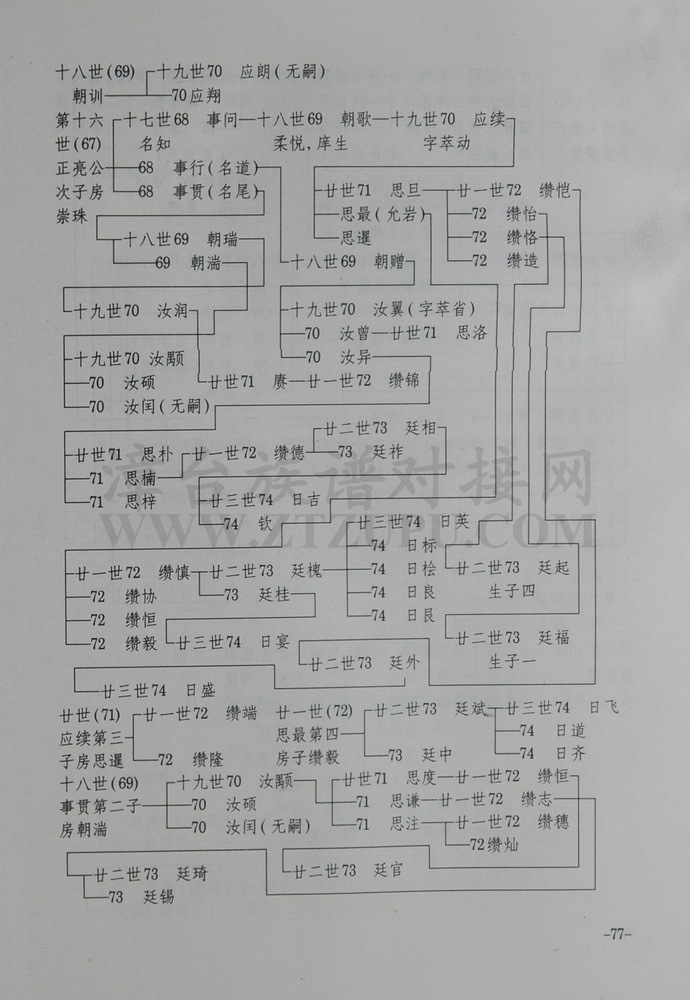 十八世(69) 十九世70 应朗(无嗣)
朝训 70应翔
第十六 十七世68 事问 十八世69 朝歌 十九世70 应续
世(67) 名知 柔悦,庠生 字萃动
正亮公 68 事行(名道)
次子房 68 事贯(名尾) 廿世71 思旦 廿一世72 缵恺
崇珠 思最(允岩) 72 缵怡
十八世69 朝瑞 思暹 72 缵恪
69 朝湍 十八世69 朝赠 72 缵造
十九世70 汝润 十九世70 汝翼(字萃省)
70 汝曾 廿世71 思洛
十九世70 汝颙 70 汝异
70 汝硕 廿世71 赓 廿一世72 缵锦
70 汝闰(无嗣)
廿二世73 廷相
廿世71 思朴 廿一世72 缵德 73 廷祚
71 思楠
71 思梓 廿三世74 日吉
74 钦 廿三世74 日英
74 日标
廿一世72 缵慎 廿二世73 廷槐 74 日桧 廿二世73 廷起
72 缵协 73 廷桂 74 日良 生子四
72 缵恒 74 日艮
72 缵毅 廿三世74 日宴 廿二世73 廷福
廿二世73 廷外 生子一
廿三世74 日盛
廿世(71) 廿一世72 缵端 廿一世(72) 廿二世73 廷斌 廿三世74 日飞
应续第三 思最第四 74 日道
子房思暹 72 缵隆 房子缵毅 73 廷中 74 日齐
十八世(69) 十九世70 汝颙 廿世71 思度 廿一世72 缵恒
事贯第二子 70 汝硕 71 思谦 廿一世72 缵志
房朝湍 70 汝闰(无嗣) 71 思注 廿一世72 缵穗
72缵灿
廿二世73 廷琦 廿二世73 廷官
73 廷锡
-77-
漳台族谱对接网
WWW.ZTZUPU.COM